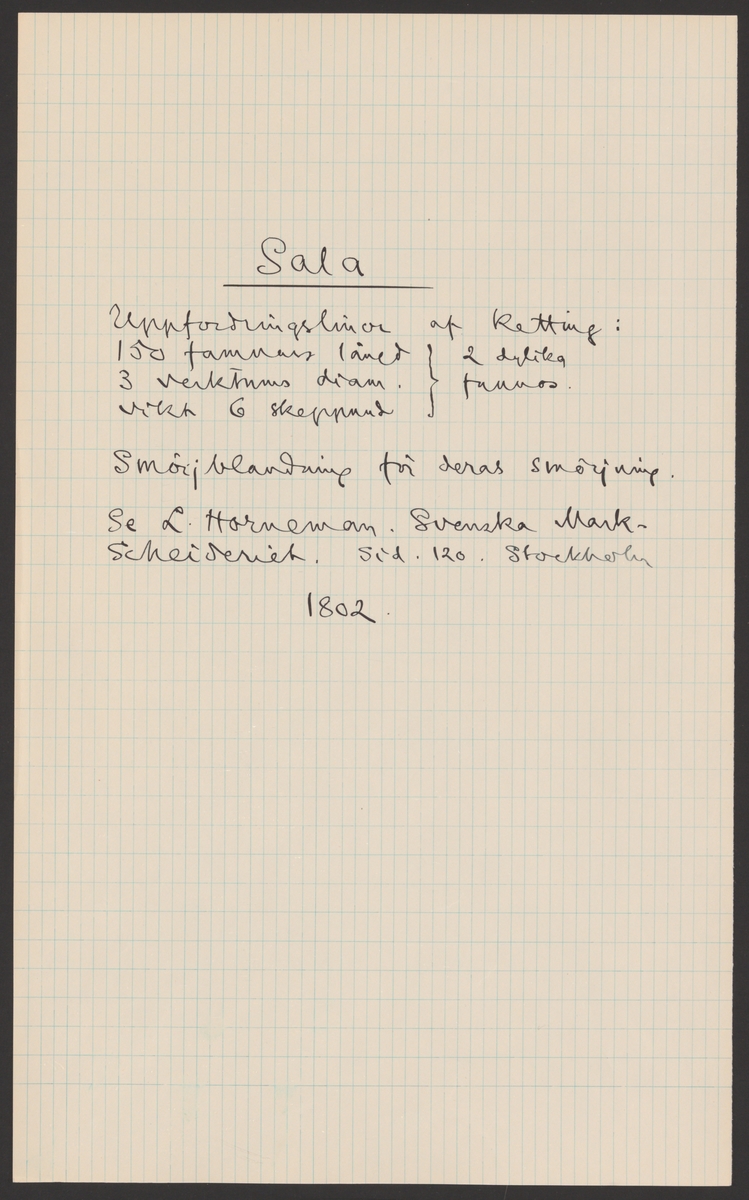 Sala
Uppfordringslinor af ketting:
150 famnars längd } 2 dylika
3 verktums diam. } funnos.
vikt 6 skeppund
Smörjblandning för deras smörjning.
Se L. Horneman. Svenska Mark-
scheideriet. Sid. 120. Stockholm
1802.